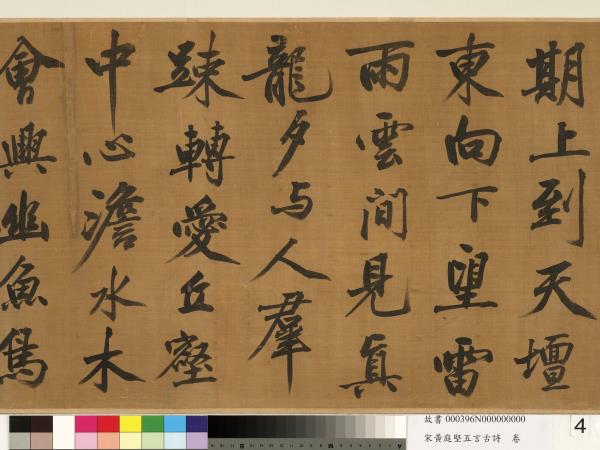 期上到天壇
東向下望雷
雨雲間見真
龍夕与人羣
踈轉愛丘壑
中心澹水木
會興幽魚鳥
故書 000396N000000000
宋黃庭堅五言古詩 卷
4